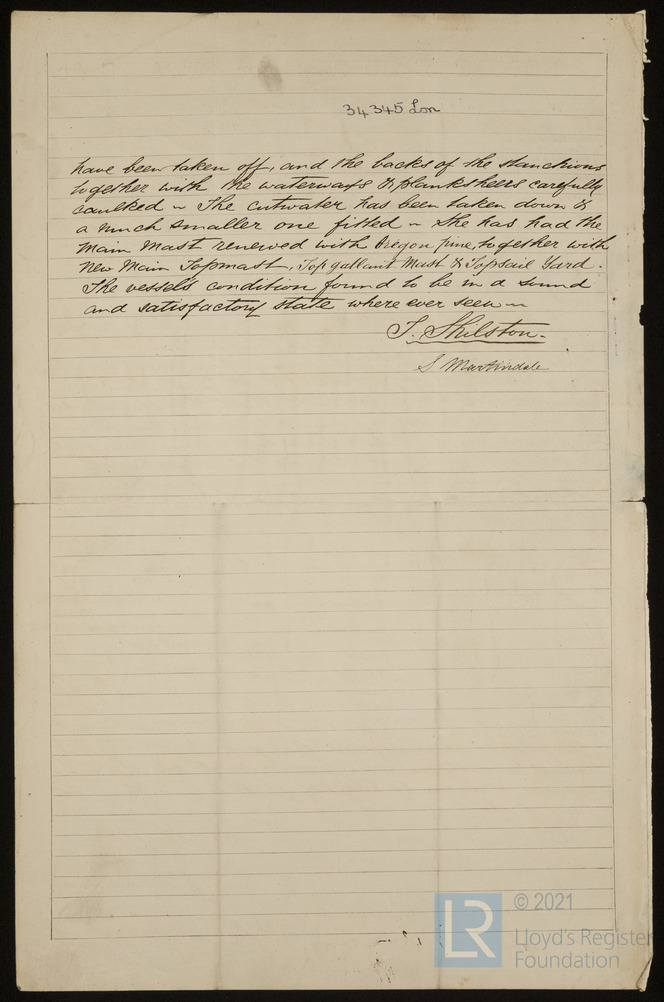 34345 Lon
have been taken off, and the backs of the stanchions
together with the waterways & planksheers carefully
caulked ~ The cutwater has been taken down &
a much smaller one fitted ~ She has had the
Main Mast renewed with Oregon pine, together with
New Main Topmast, Topgallant Mast & Topsail Yard.
The vessel's condition found to be in a sound
and satisfactory state where ever seen ~
T. Shilston.
S Martindale
LR
© 2021
Lloyd's Register
Foundation